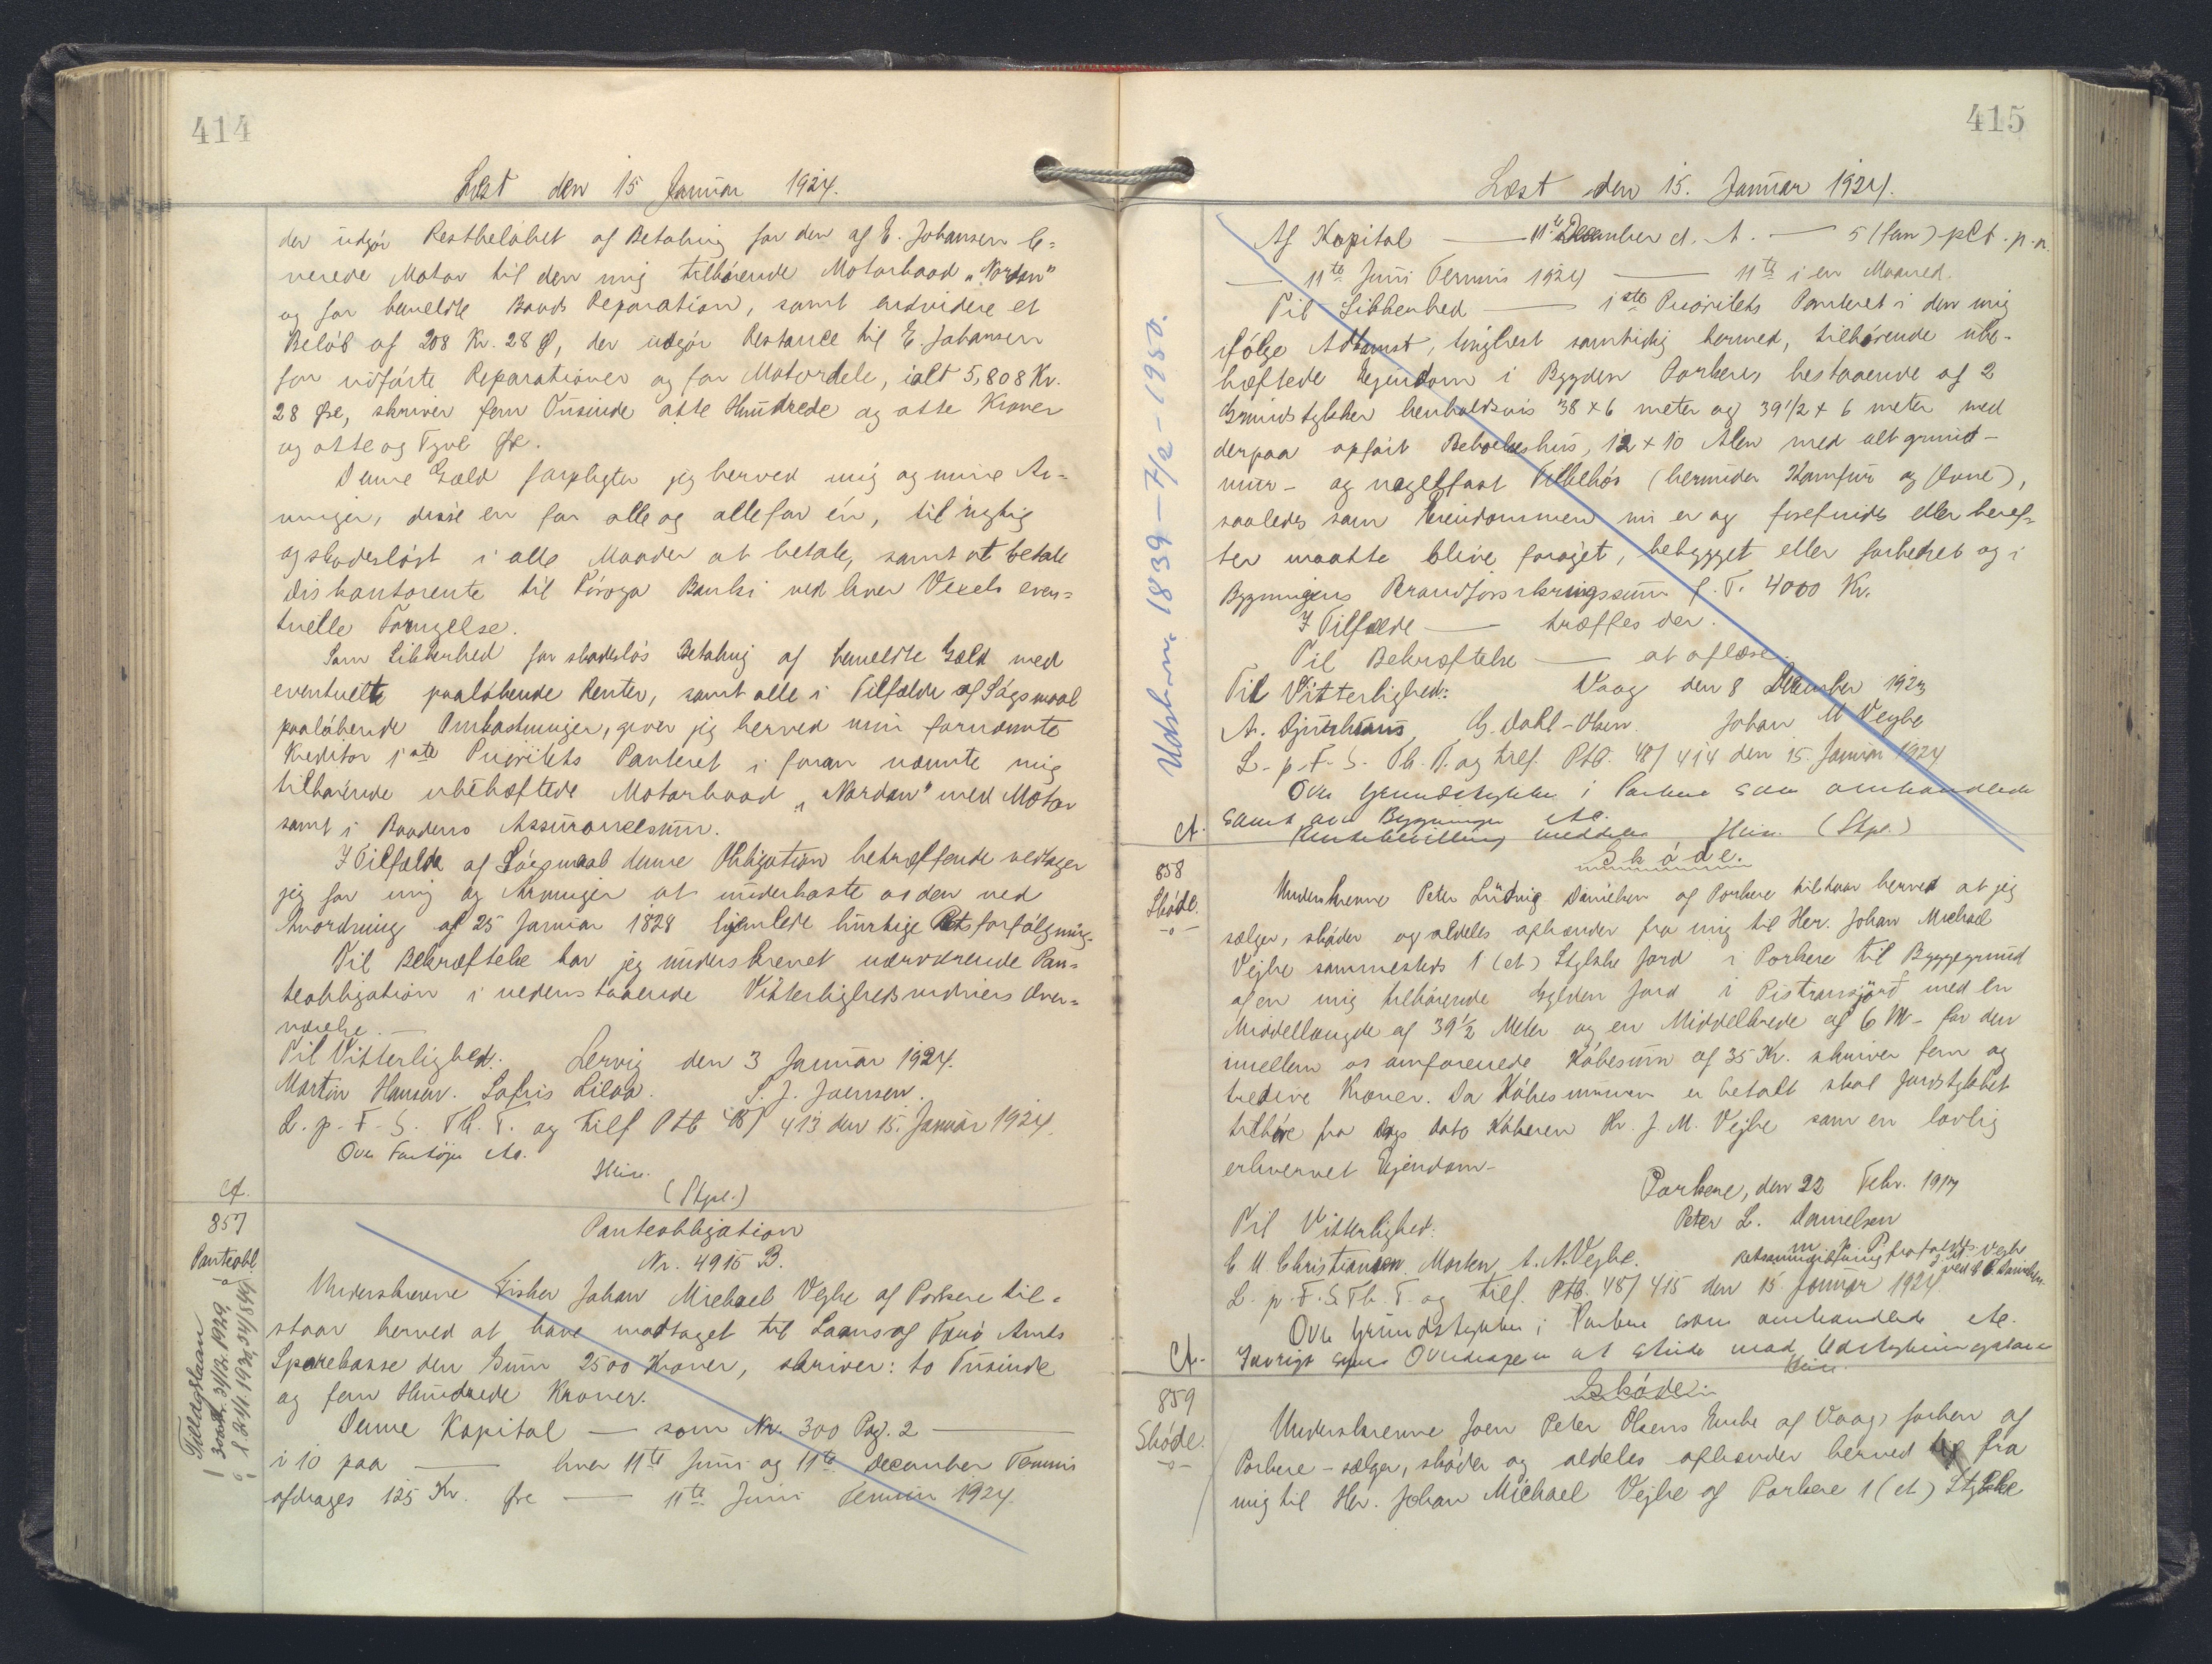 414
Læst den 15 Januar 1924.
der udgør Restbeløbet af Betaling for den af E. Johansen le=
verede Motor til den mig tilhørende Motorbaad "Nordon"
og for bemeldte Baads Reparation, samt endvidere et
Beløb af 208 Kr. 28 Ø, der udgør Restance til E. Johansen
for udførte Reparationer og for Motordele, ialt 5,808 Kr.
28 Øre, skriver fem Tusinde otte Hundrede og otte Kroner
og otte og Tyve Øre.
Denne Gæld forpligter jeg herved mig og mine Ar=
vinger, disse en for alle og alle for én, til rigtig
og skadesløst i alle Maader at betale, samt at betale
Diskontorente til Føroya Banki ved hver Vexels even=
tuelle Fornyelse.
Som Sikkerhed for skadesløs Betaling af bemeldte Gæld med
eventuelle paaløbende Renter, samt alle i Tilfælde af Søgsmaal
paaløbende Omkostninger, giver jeg herved min fornævnte
Kreditor 1ste Prioritets Panteret i foran nævnte mig
tilhørende ubehæftede Motorbaad "Nordon" med Motor
samt i Baadens Assurancesum.
I Tilfælde af Søgsmaal denne Obligation betræffende vedtager
jeg for mig og Arvinger at underkaste os den ved
Anordning af 25 Januar 1828 hjemlede hurtige Retsforfølgning.
Til Bekræftelse har jeg underskrevet nærværende Pan=
teobligation i nedenstaaende Vitterlighedsvidners Over=
værelse.
Til Vitterlighed: Lervig den 3 Januar 1924.
Martin Hansen. Sofris Lilaa. S. J. Joensen.
L. p. F. S. Th. T. og tilf Ptb 48/413 den 15. Januar 1924.
Over Fartøjer etc.
(Stpl.)
Ct.
857
Panteobl.
Tillægslaan
Panteobligation
Nr. 4915 B.
Underskrevne Fisker Johan Michael Vejhe af Porkere til=
staar herved at have modtaget til Laans af Færø Amts
Sparekasse den Sum 2500 Kroner, skriver: to Tusinde
og fem Hundrede Kroner.
Denne Kapital — som Nr. 300 Pag. 2 —
i 10 paa — hver 11te Juni og 11te December Termin
afdrages 125 Kr. Øre — 11te Juni Termin 1924.
415
Læst den 15. Januar 1924.
Af Kapital — 11te December d. A. — 5 (fem) pCt. p. a.
— 11te Juni Termin 1924 — 11te i en Maaned.
Til Sikkerhed — 1ste Prioritets Panteret i den mig
ifølge Adkomst, tinglæst samtidig hermed, tilhørende ube-
hæftede Ejendom i Bygden Porkere, bestaaende af 2
Grundstykker henholdsvis 38 x 6 meter og 39 1/2 x 6 meter med
derpaa opført Beboelseshus, 12 x 10 Alen med alt grund-
mur- og nagelfast Tilbehør (herunder Komfur og Ovne),
saaledes som Ejendommen nu er og forefindes eller heref-
ter maatte blive forøget, bebygget eller forbedret og i
Bygningens Brandforsikringssum p. T. 4000 Kr.
I Tilfælde — træffes der.
Til Bekræftelse — at aflæse.
Til Vitterlighed: Vaag den 8 December 1923
A. Djurhuus G. Dahl-Olsen. Johan M Vejhe
L. p. F. S. Th. T. og tilf. Ptb. 48/414 den 15. Januar 1924
Over Grundstykker i Porkere som omhandlede
samt over Bygninger etc.
Rentebevilling meddeles (Stpl.)
Udslr. 1839 - 7/2 - 1950.
Ct.
858
Skøde.
Skøde.
Underskrevne Peter Ludvig Danielsen af Porkere tilstaar herved at jeg
sælger, skøder og aldeles afhænder fra mig til Her. Johan Michael
Vejhe sammesteds 1 (et) Stykke Jord i Porkere til Byggegrund
af en mig tilhørende Gylden Jord i Pistransjørð med en
Middellængde af 39½ Meter og en Middelbrede af 6 M - for den
imellem os omforenede Købesum af 35 Kr. skriver fem og
tredive Kroner. Da Købesummen er betalt skal Jordstykket
tilhøre fra Dags dato Køberen Hr. J. M. Vejhe som en lovlig
erhvervet Ejendom-
Porkere, den 22 Febr. 1917
Til Vitterlighed: Peter L. Danielsen
m. p. P.
E M Christiansen. Morten A. N. Vejhe.
L. p. F. S. Th. T. og tilf. Ptb. 48/415 den 15 Januar 1924
Over Grundstykker i Porkere som omhandlede etc.
Ct.
859
Skøde.
Skøde:
Underskrevne Joen Peter Olsens Enke af Vaag, forhen af
Porkere - sælger, skøder og aldeles afhænder herved fra
mig til Her. Johan Michael Vejhe af Porkere 1 (et) Stykke